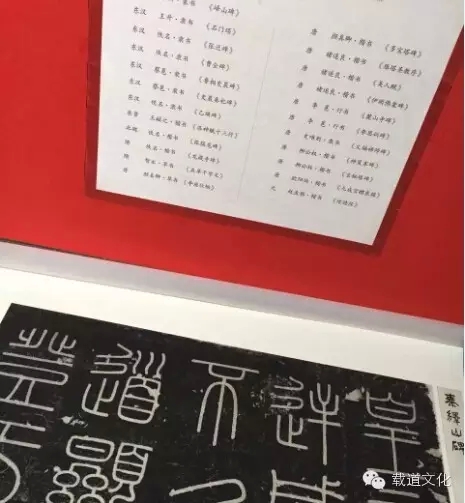 《峄山碑》
东汉 王升·隶书 《石门颂》
东汉 佚名·隶书 《张迁碑》
东汉 佚名·隶书 《曹全碑》
东汉 蔡邕·隶书 《鲁相史晨碑》
东汉 蔡邕·隶书 《史晨奏祀碑》
东汉 佚名·隶书 《乙瑛碑》
王献之·楷书
北魏 佚名·楷书 《张猛龙碑》
隋 佚名·楷书 《龙藏寺碑》
隋 智永·草书 《真草千字文》
唐 颜真卿·草书 《争座位帖》
唐 颜真卿·楷书 《多宝塔碑》
唐 褚遂良·楷书 《雁塔圣教序》
唐 褚遂良·楷书
唐 褚遂良·楷书 《伊阙佛龛碑》
唐 李邕·行书 《麓山寺碑》
唐 李邕·行书 《李思训碑》
唐 史维则·隶书 《大智禅师碑》
唐 柳公权·楷书 《神策军碑》
唐 柳公权·楷书 《玄秘塔碑》
唐 欧阳询·楷书 《九成宫醴泉铭》
元 赵孟頫·楷书
秦绎山碑
皇
不
道顯
载道文化